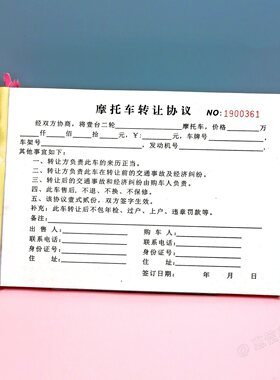 摩托车转让协议 NO:1900361
经双方协商，将壹台二轮＿＿＿＿摩托车，价格＿＿万
＿仟＿佰＿拾＿元，￥：＿＿元，车牌号＿＿＿＿
车架号＿＿＿＿，发动机号＿＿＿＿。
其他事宜如下：
一、转让方负责此车的来历正当。
二、转让方负责此车在转让前的交通事故及经济纠纷。
三、转让后的交通事故和经济纠纷由购车人负责。
四、此车售后，不退、不换、不保修。
五、该协议壹式贰份，双方签字生效。
补充：此车转让后不包年检、过户、上户、违章罚款等。
备注：
出售人： 购车人：
联系电话： 联系电话：
身份证号： 身份证号：
住址： 住址：
签订日期： 年 月 日